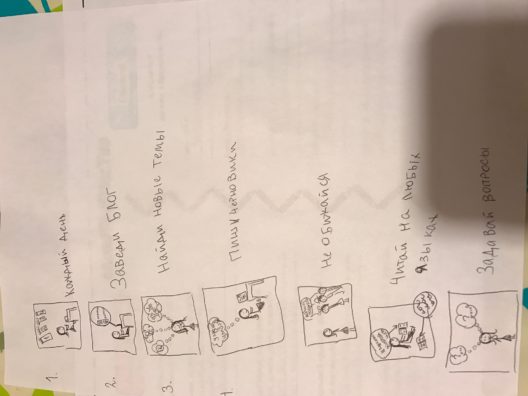 1. Каждый день
2. Заведи Блог
3. Найди новые темы
Пиши черновики
Не обижайся
Читай на любых
языках
Задавай вопросы